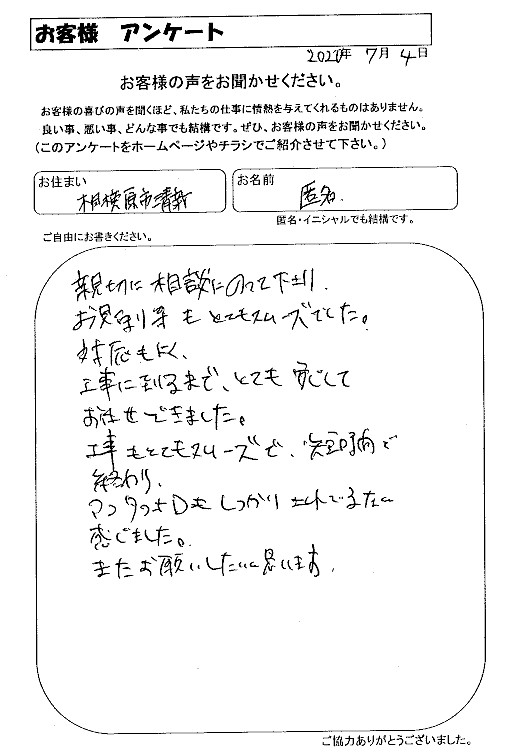 お客様 アンケート
2020年 7月 4日
お客様の声をお聞かせください。
お客様の喜びの声を聞くほど、私たちの仕事に情熱を与えてくれるものはありません。
良い事、悪い事、どんな事でも結構です。ぜひ、お客様の声をお聞かせください。
(このアンケートをホームページやチラシでご紹介させて下さい。)
お住まい
相模原市清新
お名前
匿名.
匿名・イニシャルでも結構です。
ご自由にお書きください。
親切に相談にのって下さり、
お見積り等もとてもスムーズでした。
対応もよく、
工事に到るまで、とても安心して
お任せできました。
工事もとてもスムーズで、短時間で
終わり、
しっかりされてるなと
感じました。
またお願いしたいと思います.
ご協力ありがとうございました。